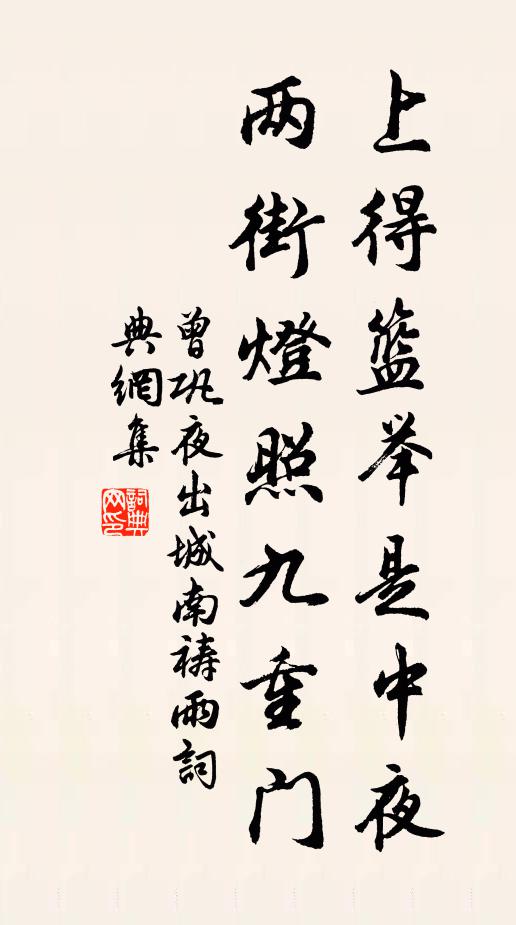 上得篮举是中夜
两街燈照九重门
曾巩夜出城南祷雨詞
典網集
詞典网印